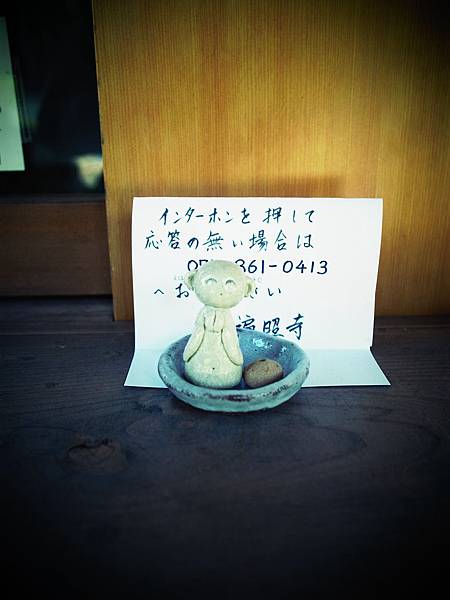 インターホンを押して
応答の無い場合は
07 361-0413
へお い
照寺